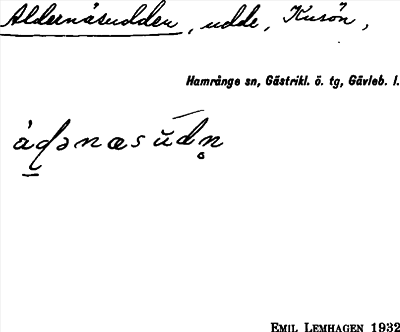 Aldernäsudden, udde, Kusön,
Hamrånge sn, Gästrikl. ö. tg, Gävleb. l.
EMIL LEMHAGEN 1932